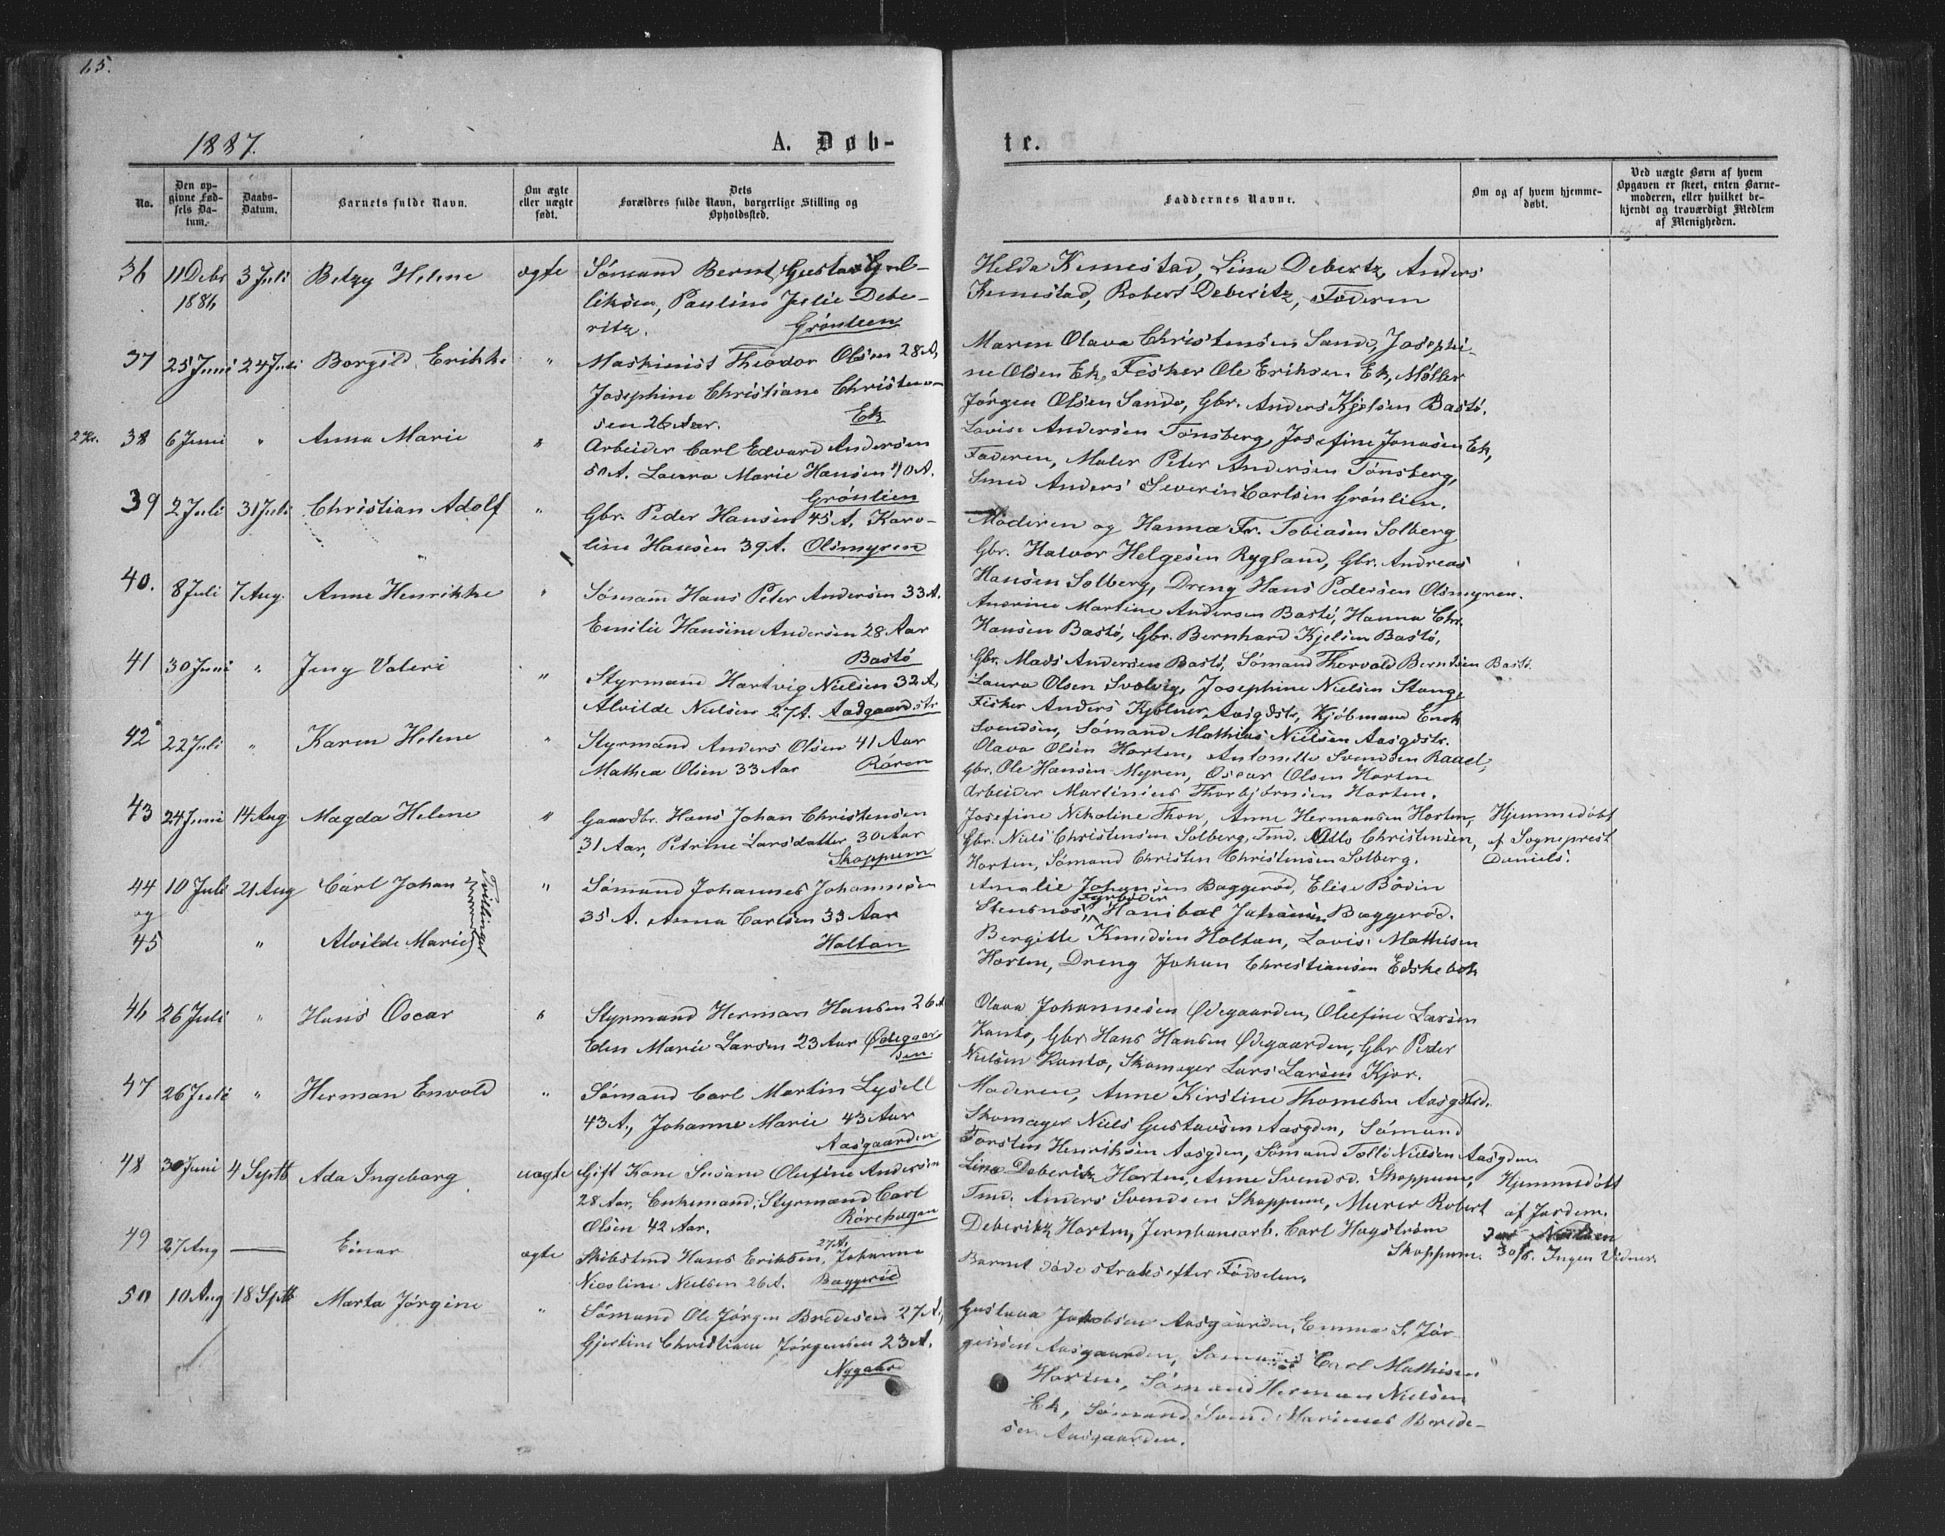 65.
1887.
A. Døb-
No.
Den op-
givne Fød-
sels Da-
tum.
Daabs-
Datum.
Barnets fulde Navn.
Om ægte
eller uægte
født.
Dets
Forældres fulde Navn, borgerlige Stilling og
Opholdssted.
36 11 Debr 3 Juli Betzy Helene ægte Sømand Bernt Gustav
1886 Pauline Julie Debe-
ritz. Grønlien
37 25 Juni 24 Juli Borgild Erikke " Maskinist Theodor Olsen 28 A,
Josephine Christiane Christen-
sen 26 Aar. Ek
2 Kr. 38 6 Juni " Anna Marie " Arbeider Carl Edvard Andersen
50 A. Laura Marie Hansen 40 A.
Grønlien
39 2 Juli 31 Juli Christian Adolf " Gbr. Peder Hansen 45 A. Karo-
line Hansen 39 A. Olsmyren
40. 8 Juli 7 Aug. Anne Henrikke " Sømann Hans Peter Andersen 33 A.
Emilie Hansine Andersen 28 Aar
Bastø
41 30 Juni " Jeny Valeri " Styrmand Hartvig Nielsen 32 A,
Alvilde Nielsen 27 A. Aadgaardstr
42 22 Juli " Karen Helene " Styrmand Anders Olsen 41 Aar
Mathea Olsen 33 Aar Røren
43 24 Juni 14 Aug Magda Helene " Gaardbr. Hans Johan Christensen
31 Aar, Petrine Larsdatter 30 Aar
Skoppum
44 10 Juli 21 Aug Carl Johan Tvillinger " Sømand Johannes Johannesen
og 35 A. Anna Carlsen 33 Aar
45 " Alvilde Marie Holtan
46 26 Juli " Hans Oscar " Styrmand Herman Hansen 26 A
Elen Marie Larsen 23 Aar Ødegaar
den.
47 26 Juli " Herman Envold " Sømand Carl Martin Lysell
43 A., Johanne Marie 43 Aar
Aasgaarden
48 30 Juni 4 Septb Ada Ingeborg uægte Gift Kone Susane Olufine Andersen
28 Aar, Enkemand, Styrmand Carl
Olsen 42 Aar. Rørehagen
49 27 Aug — Einar ægte Skibstmd Hans Eriksen, 27 A. Johanne
Nicoline Nielsen 26 A. Baggerød
50 10 Aug 18 Sptb Marta Jørgine " Sømand Ole Jørgen Bredesen 27 A,
Gjertine Christiane Jørgensen 23 A.
Nygaard
te.
Faddernes Navne.
Om og af hvem hjemme-
døbt.
Ved uægte Børn af hvem
Opgaven er skeet, enten Barne-
moderen, eller hvilket be-
kjendt og troværdigt Medlem
af Menigheden.
Helda Kemestad, Lina Debertz, Anders
Kemestad, Robert Deberitz, Faderen
Maren Olava Christensen Sande, Josephi-
ne Olsen Ek, Fisker Ole Eriksen Ek, Møller
Jørgen Olsen Sande, Gbr. Anders Kjelsen Bastø.
Lovise Andersen Tønsberg, Josefine Jonasen Ek,
Faderen, Maler Peter Andersen Tønsberg,
Smed Anders Severin Carlsen Grønlien.
Moderen og Hanna Fr. Tobiasen Solberg
Gbr. Halvor Helgesen Rygland, Gbr. Andreas
Hansen Solberg, Dreng Hans Pedersen Olsmyren.
Anerine Martine Andersen Bastø, Hanna Chr.
Hansen Bastø, Gbr. Bernhard Kjelsen Bastø,
Gbr. Mads Andersen Bastø, Sømand Thorvald Berntsen Bastø.
Laura Olsen Svolvig, Josephine Nielsen Stange
Fisker Anders Kjølner Aasgdstr, Kjøbmand Enok
Svendsen, Sømand Mathias Nielsen Aasgdstr.
Olava Olsen Horten, Antonette Svendsen Raael,
Gbr. Ole Hansen Myren, Oscar Olsen Horten
Arbeider Martinius Thorbjørnsen Horten.
Josefine Nikoline Thon, Anne Hermansen Horten, Hjemmedøbt
Gbr. Niels Christensen Solberg, Tmd. Otto Christensen, af Sogneprest
Horten, Sømand Christen Christensen Solberg. Daniels.
Amalie Johansen Baggerød, Elise Bødin
Stensnæs, Fyrbøder Hanibal Johansen Baggerød.
Bergitte Knudsen Holtan, Lovise Mathisen
Horten, Dreng Johan Christiansen Edskebek
Olava Johannesen Ødegaarden, Olufine Larsen
Kanto, Gbr Hans Hansen Ødegaarden, Gbr Peder
Nielsen Kanto, Skomager Lars Larsen Kjær.
Moderen, Anne Kirstine Thomesen Aasgdsd.
Skomager Niels Gustavsen Aasgden, Sømand
Torsten Henriksen Aasgden, Sømand Tolli Nielsen Aasgden
Lina Deberitz Horten, Anne Svendsd. Skoppum, Hjemmedøbt
Tmd. Anders Svendsen Skoppum, Murer Robert af Jordem.
Deberitz Horten, Jernbanearb. Carl Hagstrøm Nielsen
Skoppum. 30/6. Ingen Vidner.
Barnet døde straks efter Fødselen.
Gustava Jakobsen Aasgaarden, Emma S. Jør-
gensen Aasgaarden, Sømand Carl Mathisen
Horten, Sømand Herman Nielsen
Ek, Sømand Svend Marinus Brede-
sen Aasgaarden.